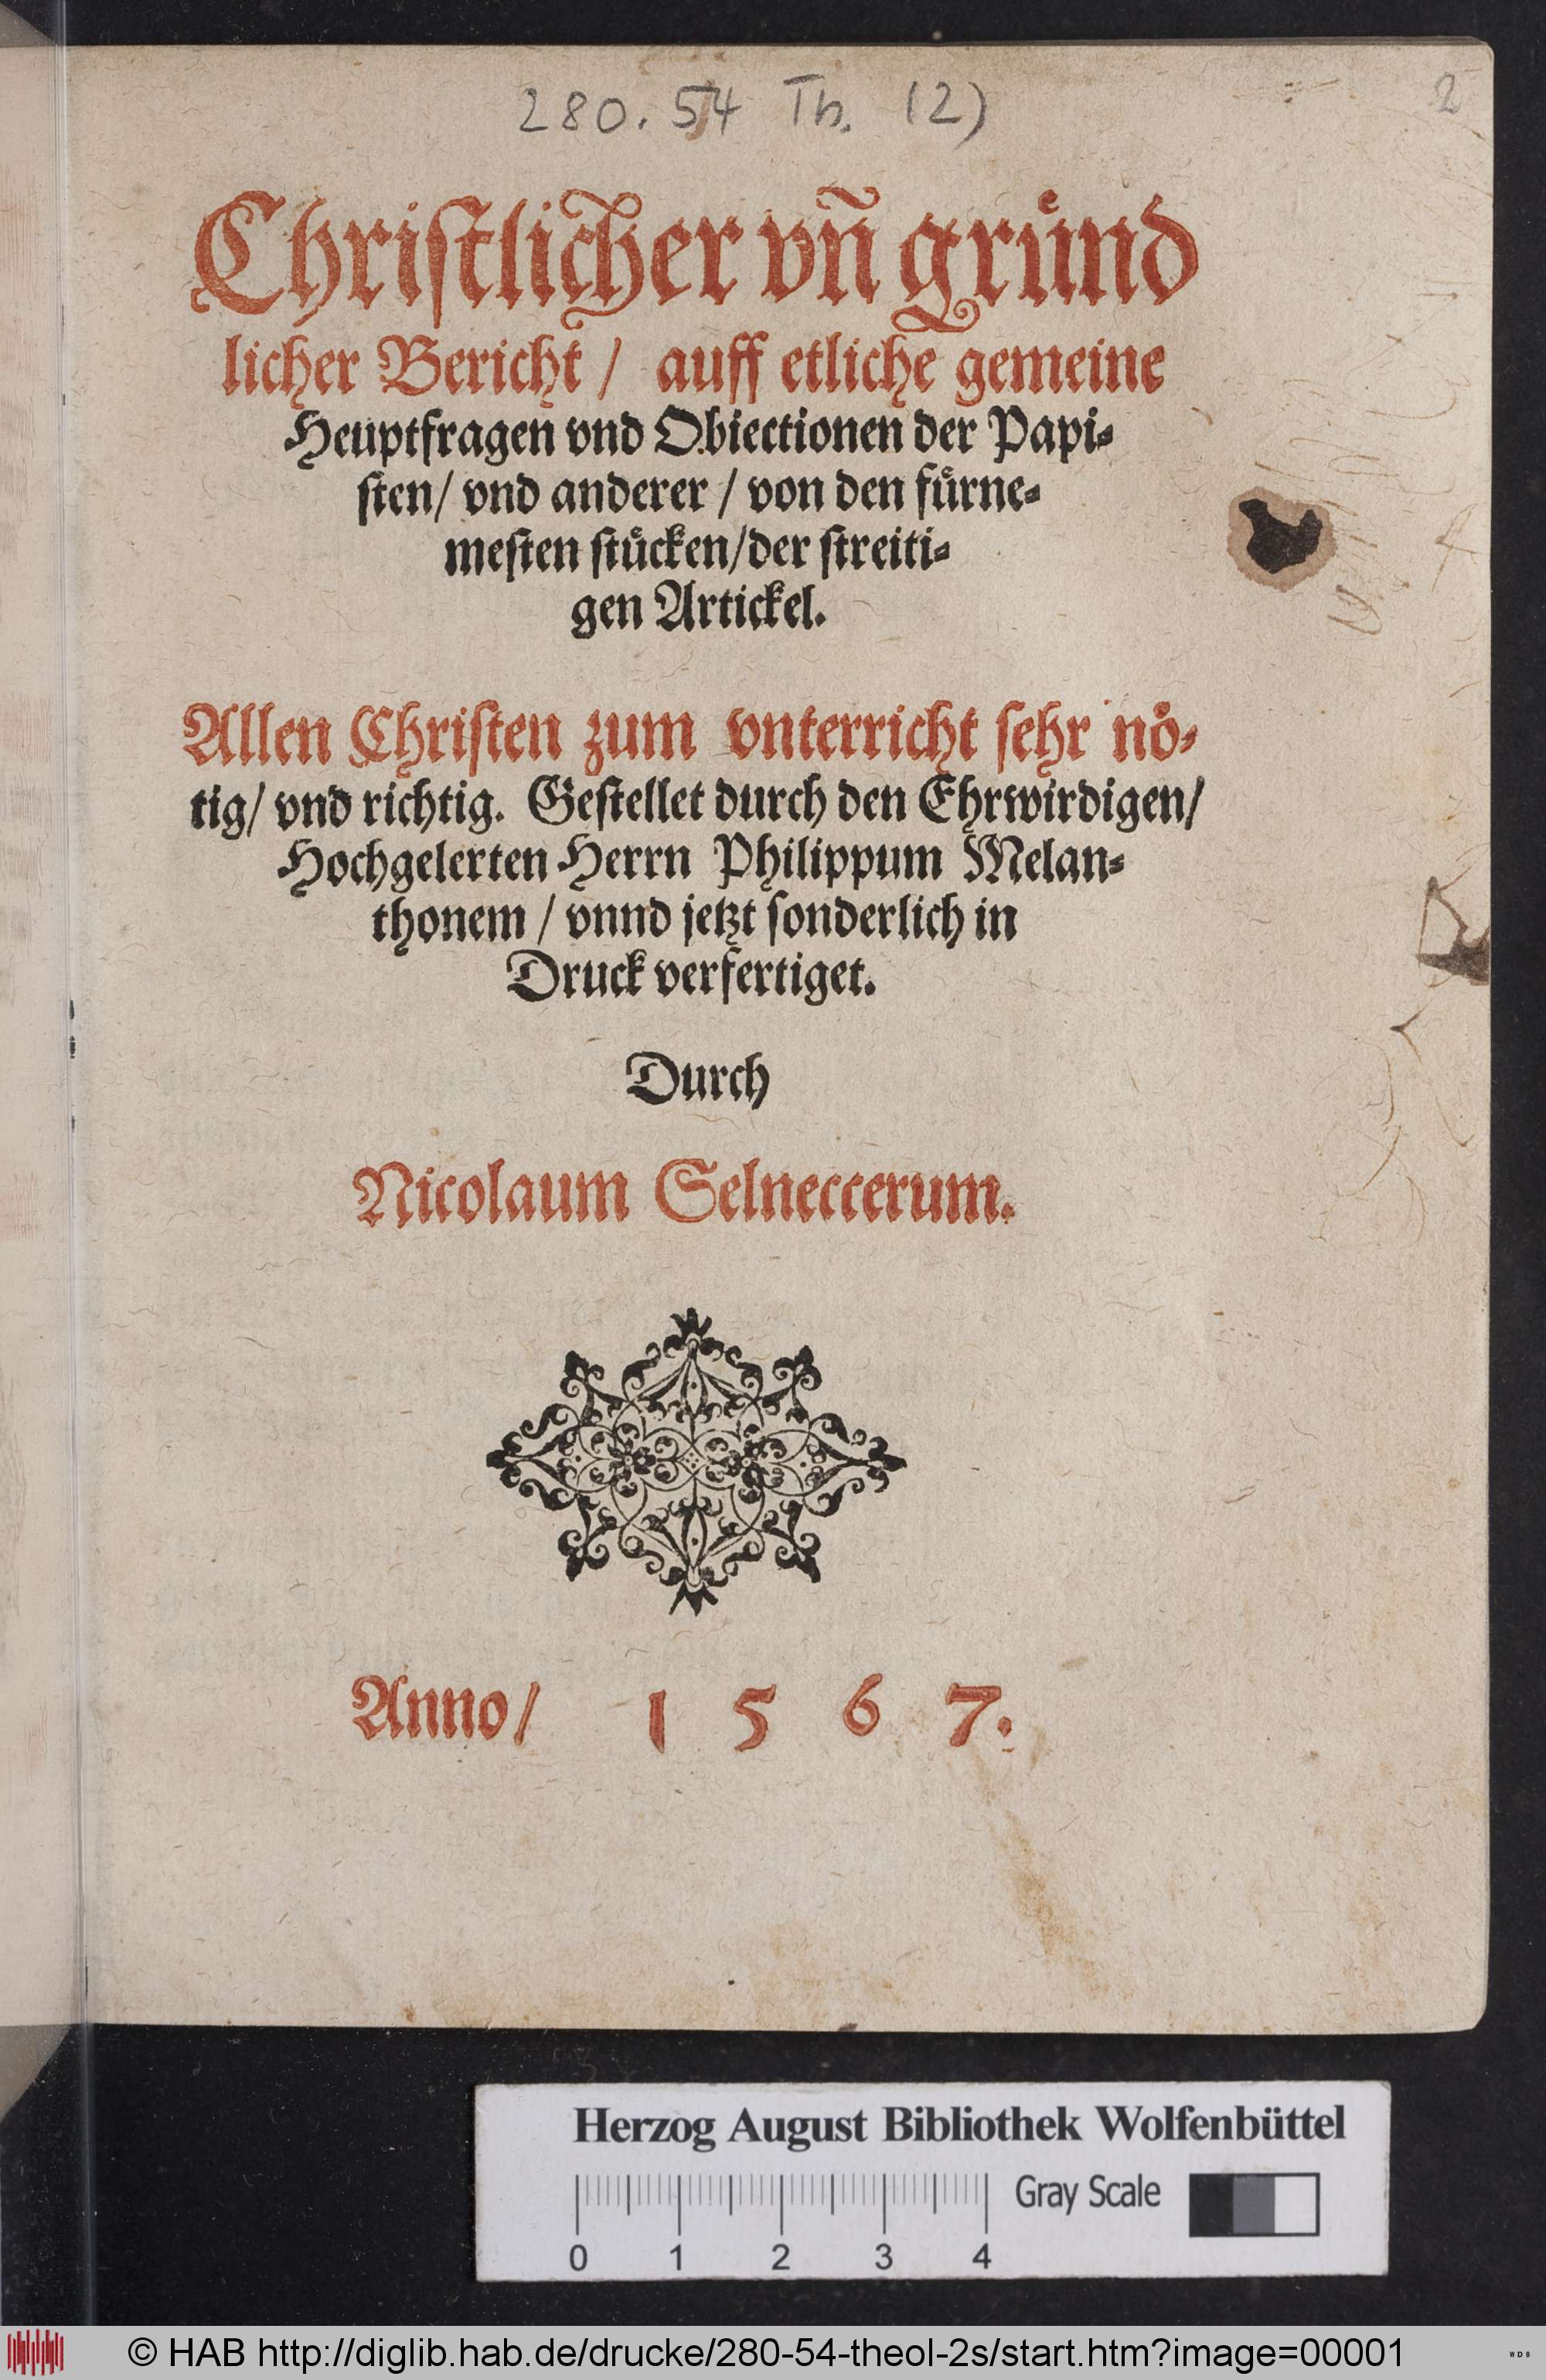 280. 54 Th. (2)
2
Christlicher vñ gruͤnd
licher Bericht / auff etliche gemeine
Heuptfragen vnd Obiectionen der Papi⸗
sten/ vnd anderer / von den fuͤrne⸗
mesten stuͤcken/der streiti⸗
gen Artickel.
Allen Christen zum vnterricht sehr noͤ⸗
tig/ vnd richtig. Gestellet durch den Ehrwirdigen/
Hochgelerten Herrn Philippum Melan⸗
thonem / vnnd jetzt sonderlich in
Druck verfertiget.
Durch
Nicolaum Selneccerum.
Anno/ 1 5 6 7.
Herzog August Bibliothek Wolfenbüttel
Gray Scale
0 1 2 3 4
© HAB http://diglib.hab.de/drucke/280-54-theol-2s/start.htm?image=00001
WDB